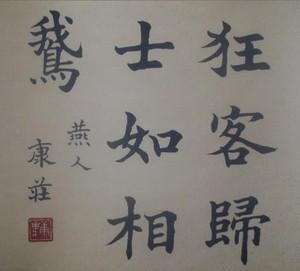 狂客歸
士如相
鵞
燕人
康莊